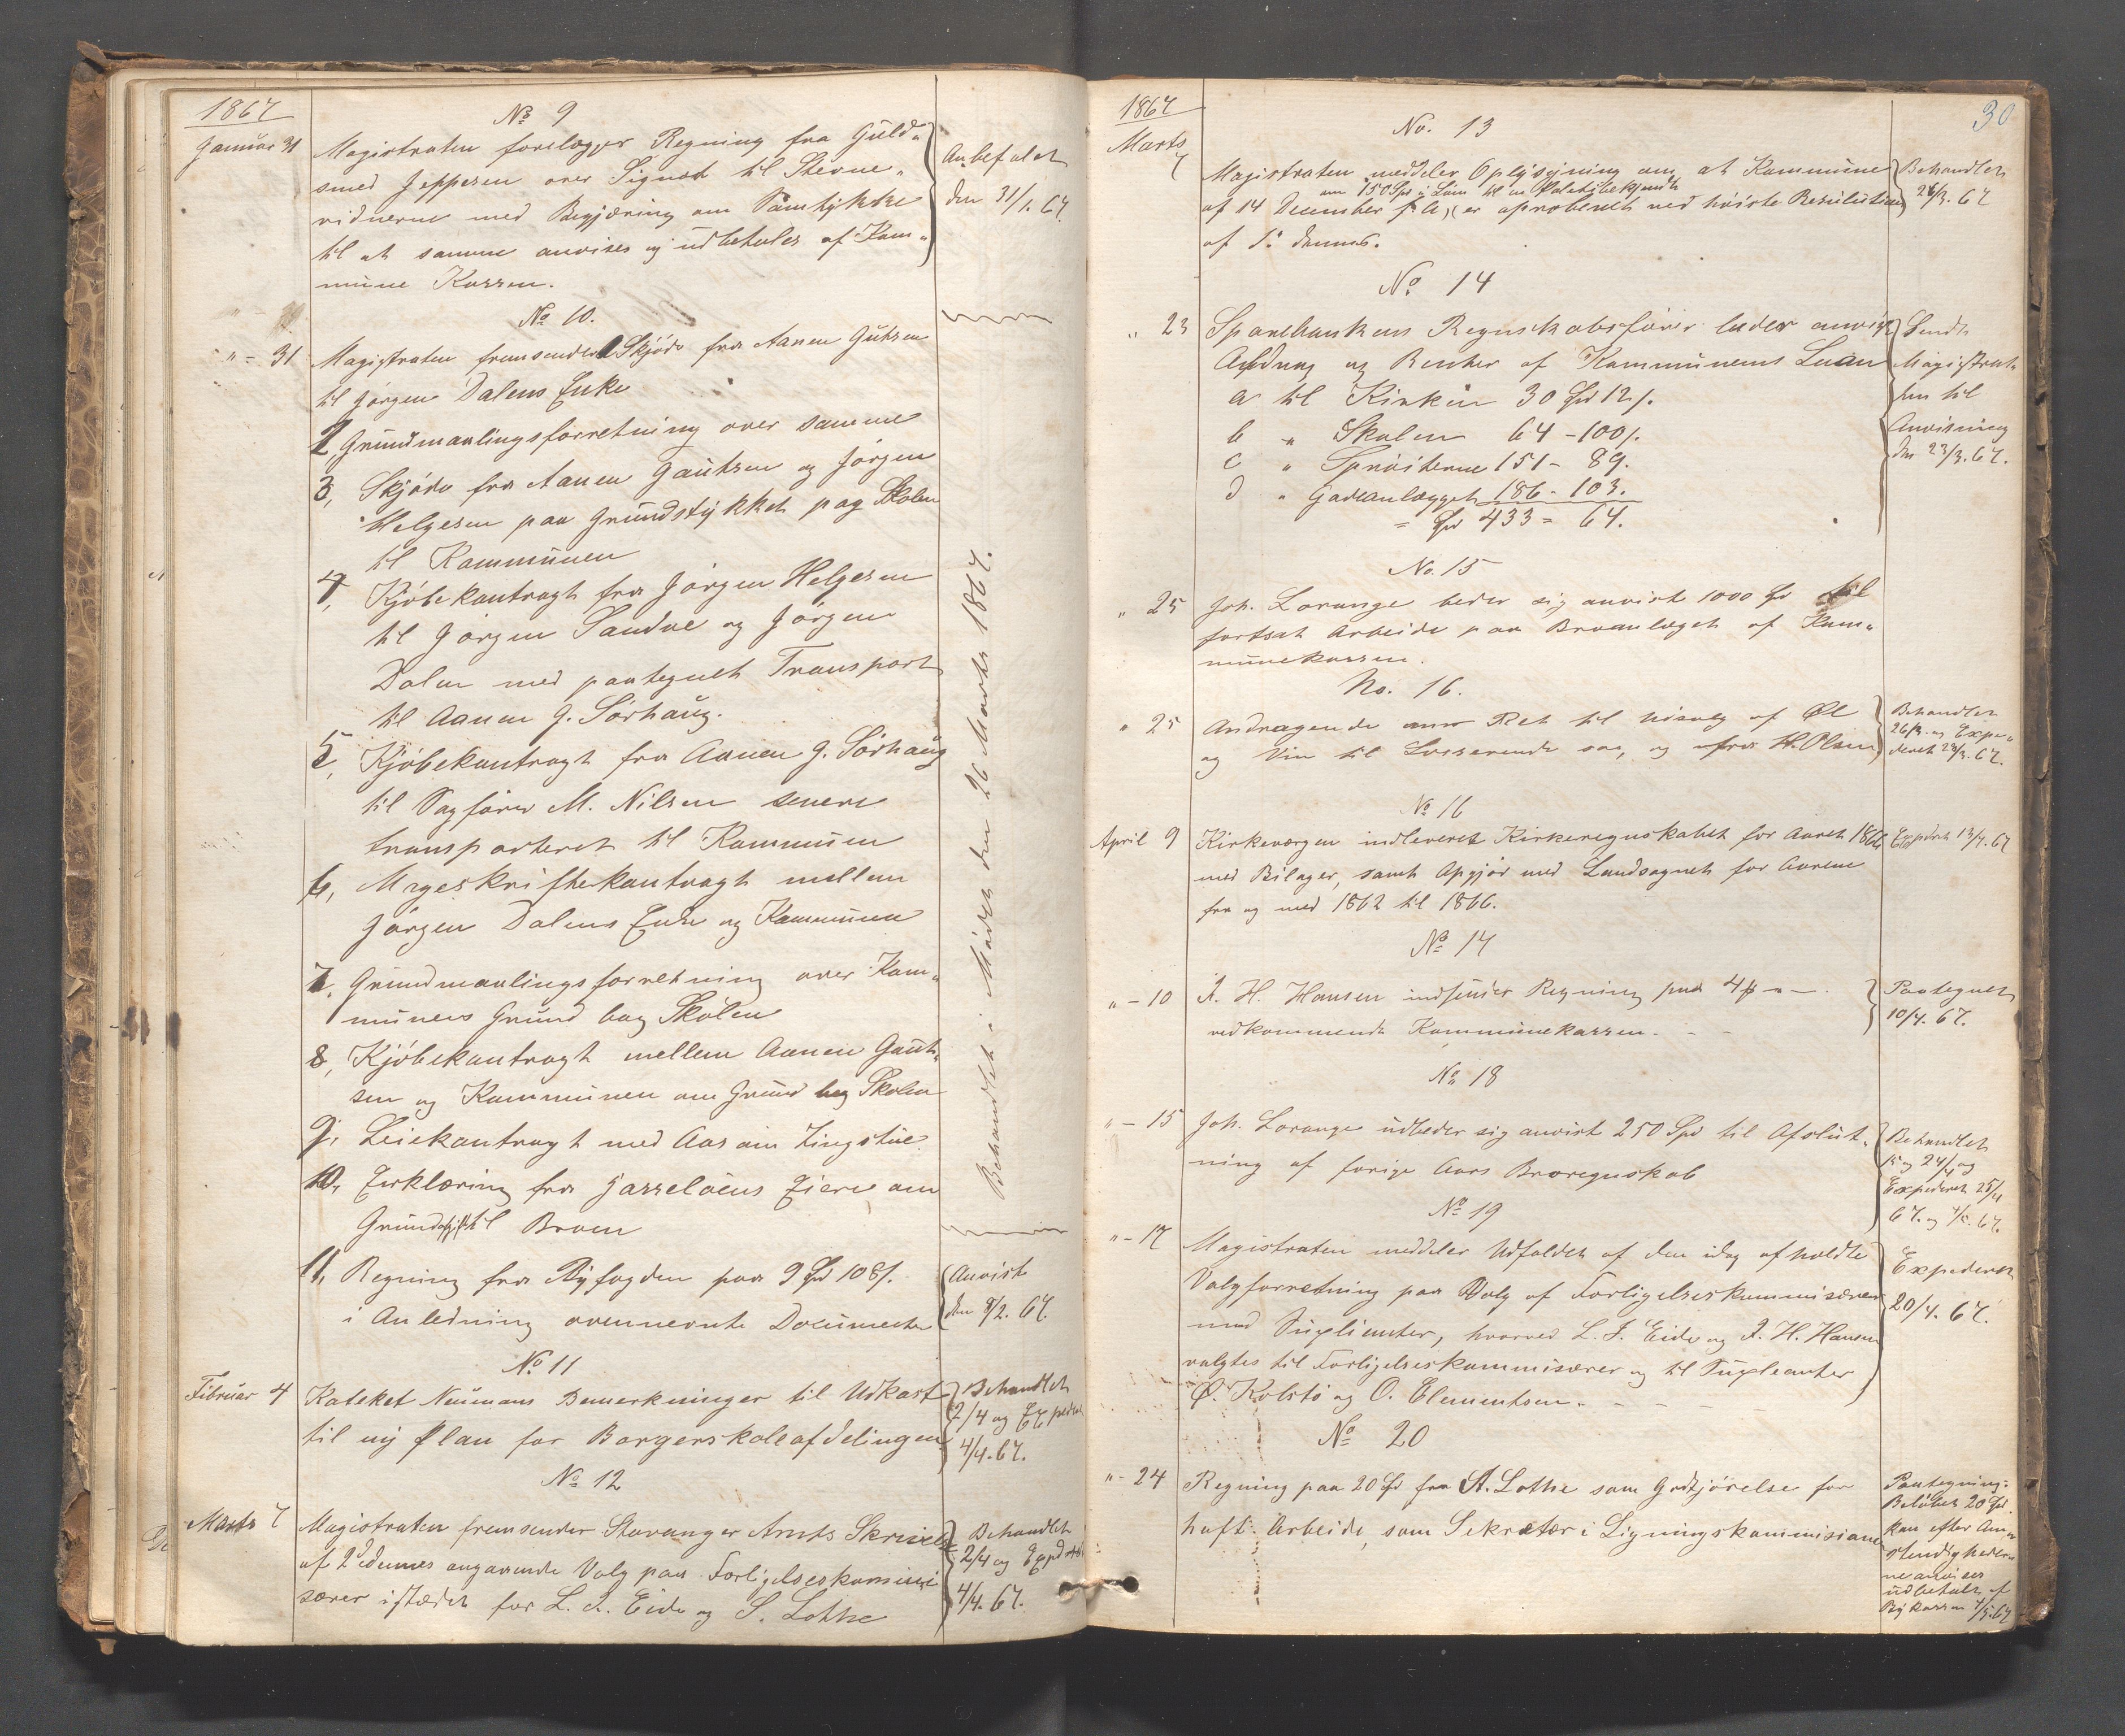 1867
No 9
Januar 31
Magistraten forelægger Regning fra Guld-
smed Jeppesen over Signet til Stevne-
vidnerne med Begjæring om Samtykke
til at samme anvises og udbetales af Kom-
mune Kassen.
Anbefalet
den 31/1. 67.
No 10.
" = 31
Magistraten fremsender 1 Skjöde fra Aanen Gutsen
til Jörgen Dalens Enke
2, Grundmaalingsforretning over samme
3, Skjöde fra Aanen Gautsen og Jörgen
Helgesen paa Grundstykket bag Skolen
til Kommunen
4, Kjöbekontragt fra Jörgen Helgesen
til Jörgen Sandve og Jörgen
Dalen med paategnet Transport
til Aanen G. Sörhaug.
5, Kjöbekontragt fra Aanen G. Sörhaug
til Sagförer M. Nilsen senere
transporteret til Kommunen
6, Mageskriftekontragt mellem
Jörgen Dalens Enke og Kommunen
7, Grundmaalingsforretning over Kom-
munens Grund bag Skolen
8, Kjöbekontragt mellem Aanen Gaut-
sen og Kommunen om Grund bag Skolen
9, Leiekontragt med Aas om Tingstue
10, Erklæring fra Hasseløens Eiere om
til Broen
Behandlet i Mödet den 26 Marts 1867.
11, Regning fra Byfogden paa 9 Spd 108 s.
i Anledning ovennevnte Documenter
Anvist
den 9/2. 67.
No 11
Februar 4
Kateket Neumans Bemerkninger til Udkast
til ny Plan for Borgerskoleafdelingen
Behandlet
2/4 og Expederet
4/4. 67.
No 12
Marts 7
Magistraten fremsender Stavanger Amts Skrivelse
af 2 dennes angaaende Valg paa Forligelseskommis-
særer istædet for L. J. Eide og S. Lothe
Behandlet
2/4 og Exped
4/4. 67.
30
1867
No. 13
Marts
7
Magistraten meddeler Oplysning om at Kommune
om 150 Spd i Laan til
af 14 December f. A. er aproberet ved höieste Resulution
af dennes.
Behandlet
26/3. 67
No 14
" 23
Sparebankens Regnskabsförer beder anvist
Afdrag og Renter af Kommunens Laan
a til Kirken 30 Spd 12 s.
b " Skolen 64 - 100 s.
c " Spröiterne 151 - 89.
d " Gadeanlægget 186 - 103.
= Spd 433 = 64.
Sendt
Magistra-
ten til
Anvisning
den 23/3. 67.
No. 15
" 25
Joh. Lorange beder sig anvist 1000 Spd til
fortsat Arbeide paa Broanlæget af Kom-
munekassen.
No. 16.
" 25
Andragende om Ret til Udsalg af Øl
og Vin til fra H. Olsen
Behandlet
26/3. og Expe-
deret 28/3. 67.
No 16
April 9
Kirkevergen indleveret Kirkeregnskabet for Aaret 1866
med Bilager, samt Opgjör med Landsognet for Aarene
fra og med 1862 til 1866.
Expederet 13/4. 67
No 17
" - 10
J. H. Hansen indsender Regning paa
vedkommende Kommunekassen. - -
Paategnet
10/4. 67.
No 18
" - 15
Joh. Lorange udbeder sig anvist 250 Spd til Afslut-
ning af forige Aars Broregnskab
Behandlet
15 og 24/4 og
Expederet 25/4
67. og 4/5. 67.
No 19
" - 17
Magistraten meddeler Udfaldet af den idag afholdte
Valgforretning paa Valg af Forligelseskommisærer
med Suplianter, hvorved L. J. Eide og J. H. Hansen
valgtes til Forligelseskommisærer og til Supleanter
Ø. Kolstö og O. Clementsen. - - - -
Expederet
20/4. 67.
No 20
" - 24
Regning paa 20 Spd fra A. Lothe som Godtjörelse for
haft Arbeide, som Sekretær i Ligningskommisionen
Paategning:
Belöbet 20 Spd
kan efter Om-
stendigheder-
ne anvises
udbetalt af
Bykassen 4/5. 67